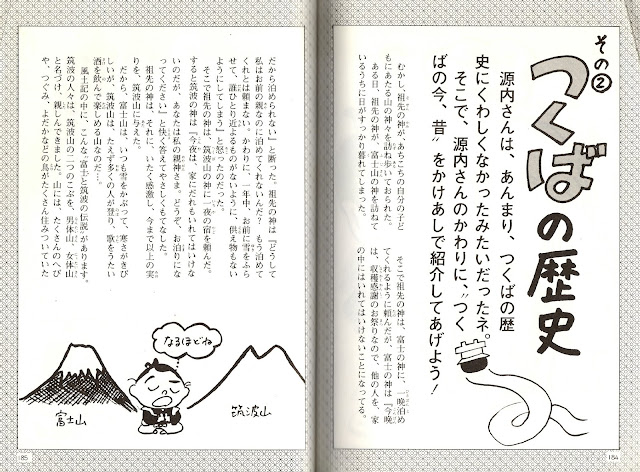 その②
つくばの歴史
源内さんは、あんまり、つくばの歴
史にくわしくなかったみたいだったネ。
そこで、源内さんのかわりに、〝つく
ばの今、昔〟をかけあしで紹介してあげよう！
むかし、祖先の神が、あちこちの自分の子ど
もにあたる山の神々を訪ね歩いておられた。
ある日、祖先の神が、富士山の神を訪ねて
いるうちに日がすっかり暮れてしまった。
そこで祖先の神は、富士の神に、一晩泊め
てくれるように頼んだが、富士の神は『今晩
は、収穫感謝のお祭りなので、他の人を、家
の中にはいれてはいけないことになってる。
184
だから泊められない』と断った。祖先の神は『どうして
私はお前の親なのに泊めてくれないんだ？　もう泊めて
くれとは頼まない。かわりに、一年中、お前に雪をふら
せて、誰ひとり近よるものがないように、供え物もない
ようにしてしまう』と怒ったのだった。
そこで祖先の神は、筑波山の神に一夜の宿を頼んだ。
すると筑波の神は『今夜は、家にだれもいれてはいけな
いのだが、あなたは私の親神さま。どうぞ、お泊りにな
ってください』と快く答えてやさしくもてなした。
祖先の神は、それに、いたく感激し、今まで以上の実
りを、筑波山に与えた。
だから、富士山は、いつも雪をかぶって、寒さがきび
しいが、筑波山は、たえず多くの人が登り、歌をうたい
酒を飲んで楽しめる山なのだ！
風土記の中に、こんな『富士と筑波の伝説』があります。
筑波の人々は、筑波山の二つのこぶを、男体山、女体山
と名づけ、親しんできました。山には、たくさんのへび
や、つぐみ、よだかなどの鳥がたくさん住みついていた
なるほどね
筑波山
富士山
185